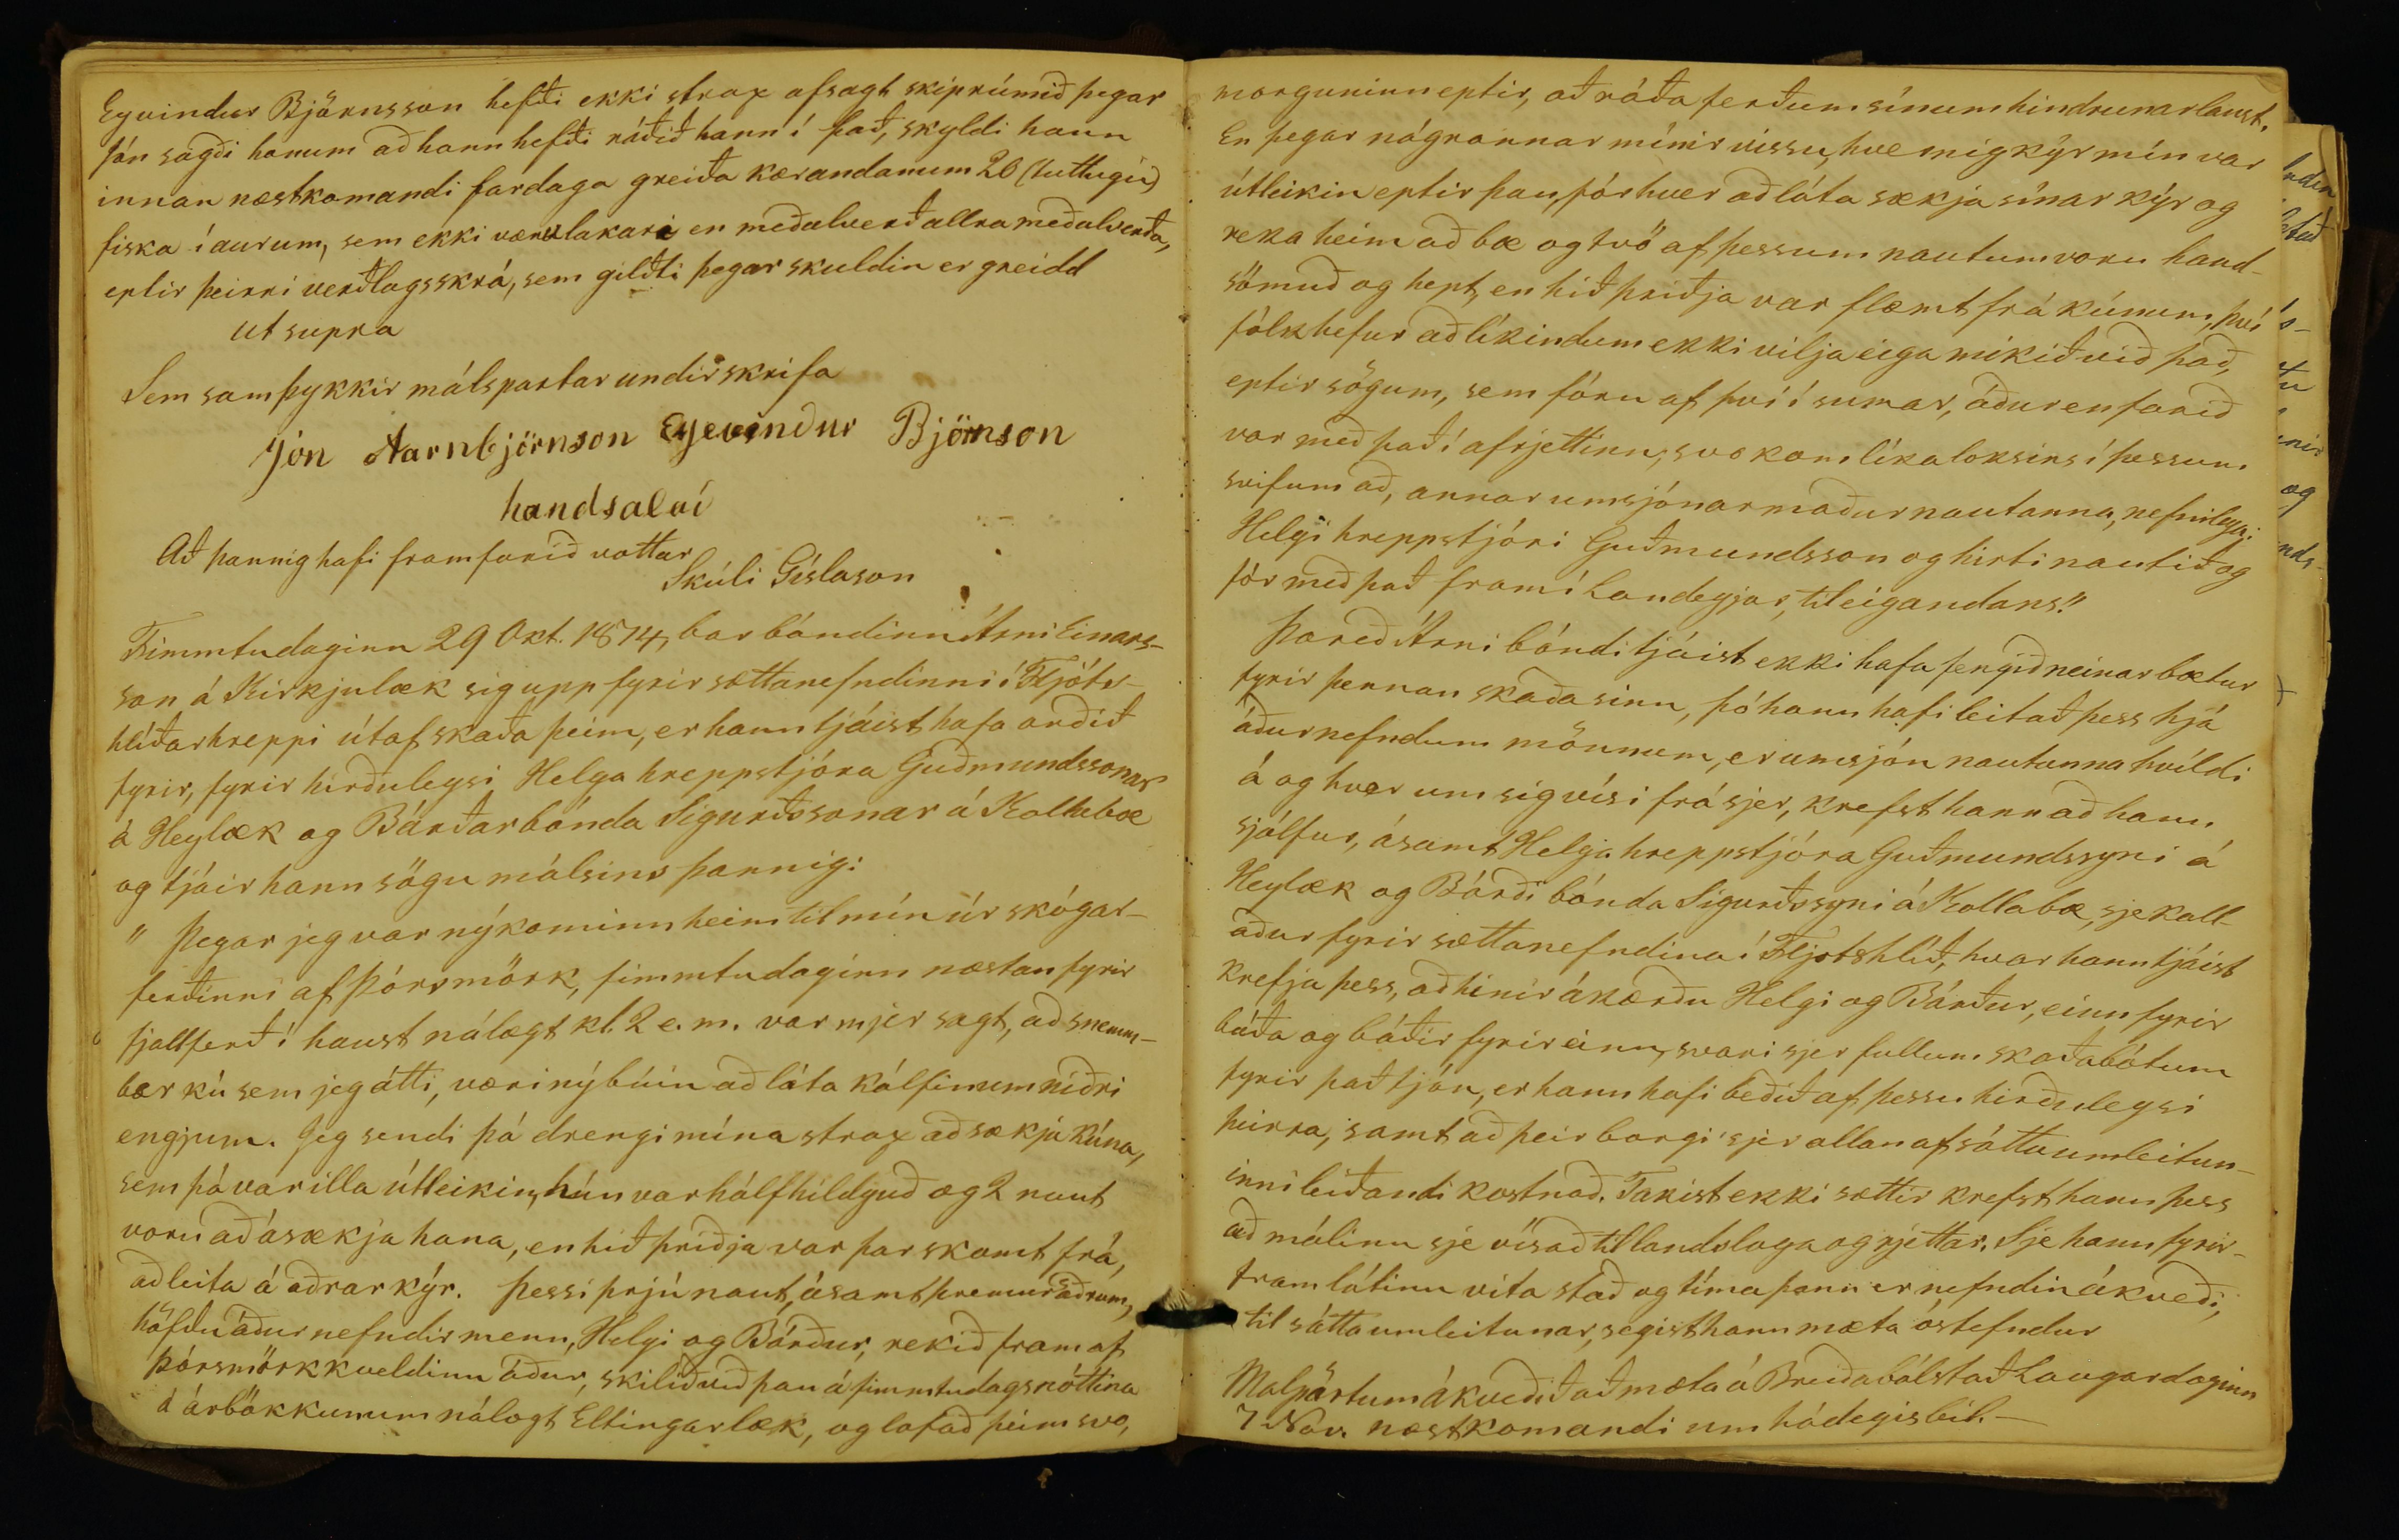 Eyvindur Björnsson hefði ekki strax afsagt skiprúmið þegar
Jón sagði honum að hann hefði ráðið hann í það, skyldi hann
innan næstkomandi fardaga greiða kærandanum 20 (tuttugu)
fiska í aurum, sem ekki væru lakari en meðalverð allra meðalverða,
eptir þeirri verðlagsskrá, sem gildti þegar skuldin er greidd
ut supra
Sem samþykkir málspartar undirskrifa
Jón Aarnbjörnson Eyevindur Björnson
handsalað
Að þannig hafi framfarið vottar
Skúli Gíslason
Fimmtudaginn 29 Okt. 1874, bar bóndinn Árni Einars-
son á Kirkjulæk sig upp fyrir sættanefndinni í Fljóts-
hlíðarhreppi útaf skaða þeim, er hann tjáist hafa orðið
fyrir, fyrir hirðuleysi Helga hreppstjóra Guðmundssonar
á Heylæk og Bárðar bónda Sigurðssonar á Kollabæ
og tjáir hann sögu málsins þannig:
" Þegar jeg var nýkominn heim til mín úr skógar-
ferðinni af Þórsmörk, fimmtudaginn næstan fyrir
fjallferð í haust nálægt kl. 2 e. m. var mjer sagt, að snemm-
bær kú sem jeg átti, væri nýbúin að láta kálfinum niðri
engjum. Jeg sendi þá drengi mína strax að sækja kúna,
sem þá var illa útleikin, hún var hálfhildguð og 2 naut
voru að ásækja hana, en hið þriðja var þar skamt frá,
að leita á aðrar kýr. Þessi þrjú naut, ásamt þremur öðrum,
höfðu áður nefndir menn, Helgi og Bárður, rekið fram af
Þórsmörk kveldinu áður, skilið við þau á fimmtudagsnóttina
á árbökkunum nálægt Eltingarlæk, og lofað þeim svo,
morguninn eptir, að ráða ferðum sínum hindrunarlaust.
En þegar nágrannar mínir vissu, hve mig kýr mín var
útleikin eptir þau, fór hver að láta sækja sínar kýr og
reka heim að bæ og tvö af þessum nautum voru hand-
sömuð og hept, en hið þriðja var flæmt frá kúnum, því
fólk hefur að líkindum ekki vilja eiga mikið við það,
eptir sögum, sem fóru af því í sumar, áður en farið
var með það í afrjettinn; svo kom líka loksins í þessum
svifum að, annar umsjónarmaður nautanna, nefnilega:
Helgi hreppstjóri Guðmundsson og hirti nautið og
fór með það fram í Landeyjar, til eigandans."
Þareð Árni bóndi tjáist ekki hafa fengið neinar bætur
fyrir þennan skaða sinn, þó hann hafi leitað þess hjá
áðurnefndum mönnum, er umsjón nautanna hvíldi
á og hver um sig vísi frá sjer, krefst hann að hann
sjálfur, ásamt Helga hreppstjóra Guðmundssyni á
Heylæk og Bárði bónda Sigurðssyni á Kollabæ, sje kall-
aður fyrir sættanefndina í Fljótshlíð, hvar hann tjáist
krefja þess, að hinir ákærðu Helgi og Bárður, einn fyrir
báða og báðir fyrir einn, svari sjer fullum skaðabótum
fyrir það tjón, er hann hafi beðið af þessu hirðuleysi
þeirra, samt að þeir borgi sjer allan af sáttaumleitun-
inni leiðandi kostnað. Takist ekki sættir krefst hann þess
að málinu sje vísað til landslaga og rjettar. Sje hann fyrir-
fram látinn vita stað og tíma þann er nefndin ákveði,
til sáttaumleitunar, segist hann mæta óstefndur
Málspörtum ákveðið að mæta á Breiðabólstað Laugardaginn
7 Nóv. næstkomandi um hádegisbil. —